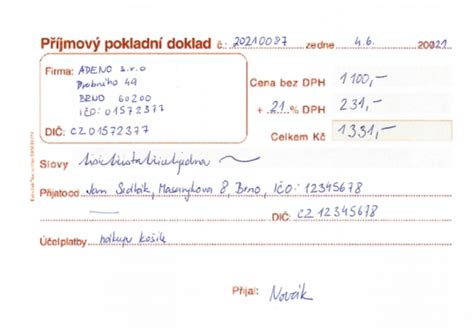 Příjmový pokladní doklad č.: 20210087 ze dne 4.6. 20021
Firma: ADENO s.r.o
Drobného 49
BRNO 60200
IČO: 01572377
DIČ: CZ01572377
Cena bez DPH 1100,-
+ 21 % DPH 231,-
Celkem Kč 1331,-
Slovy
Přijato od Jan Sedlák, Masarykova 8, Brno, IČO: 12345678
DIČ: CZ 12345678
Účel platby nákup košile
Přijal: Novák